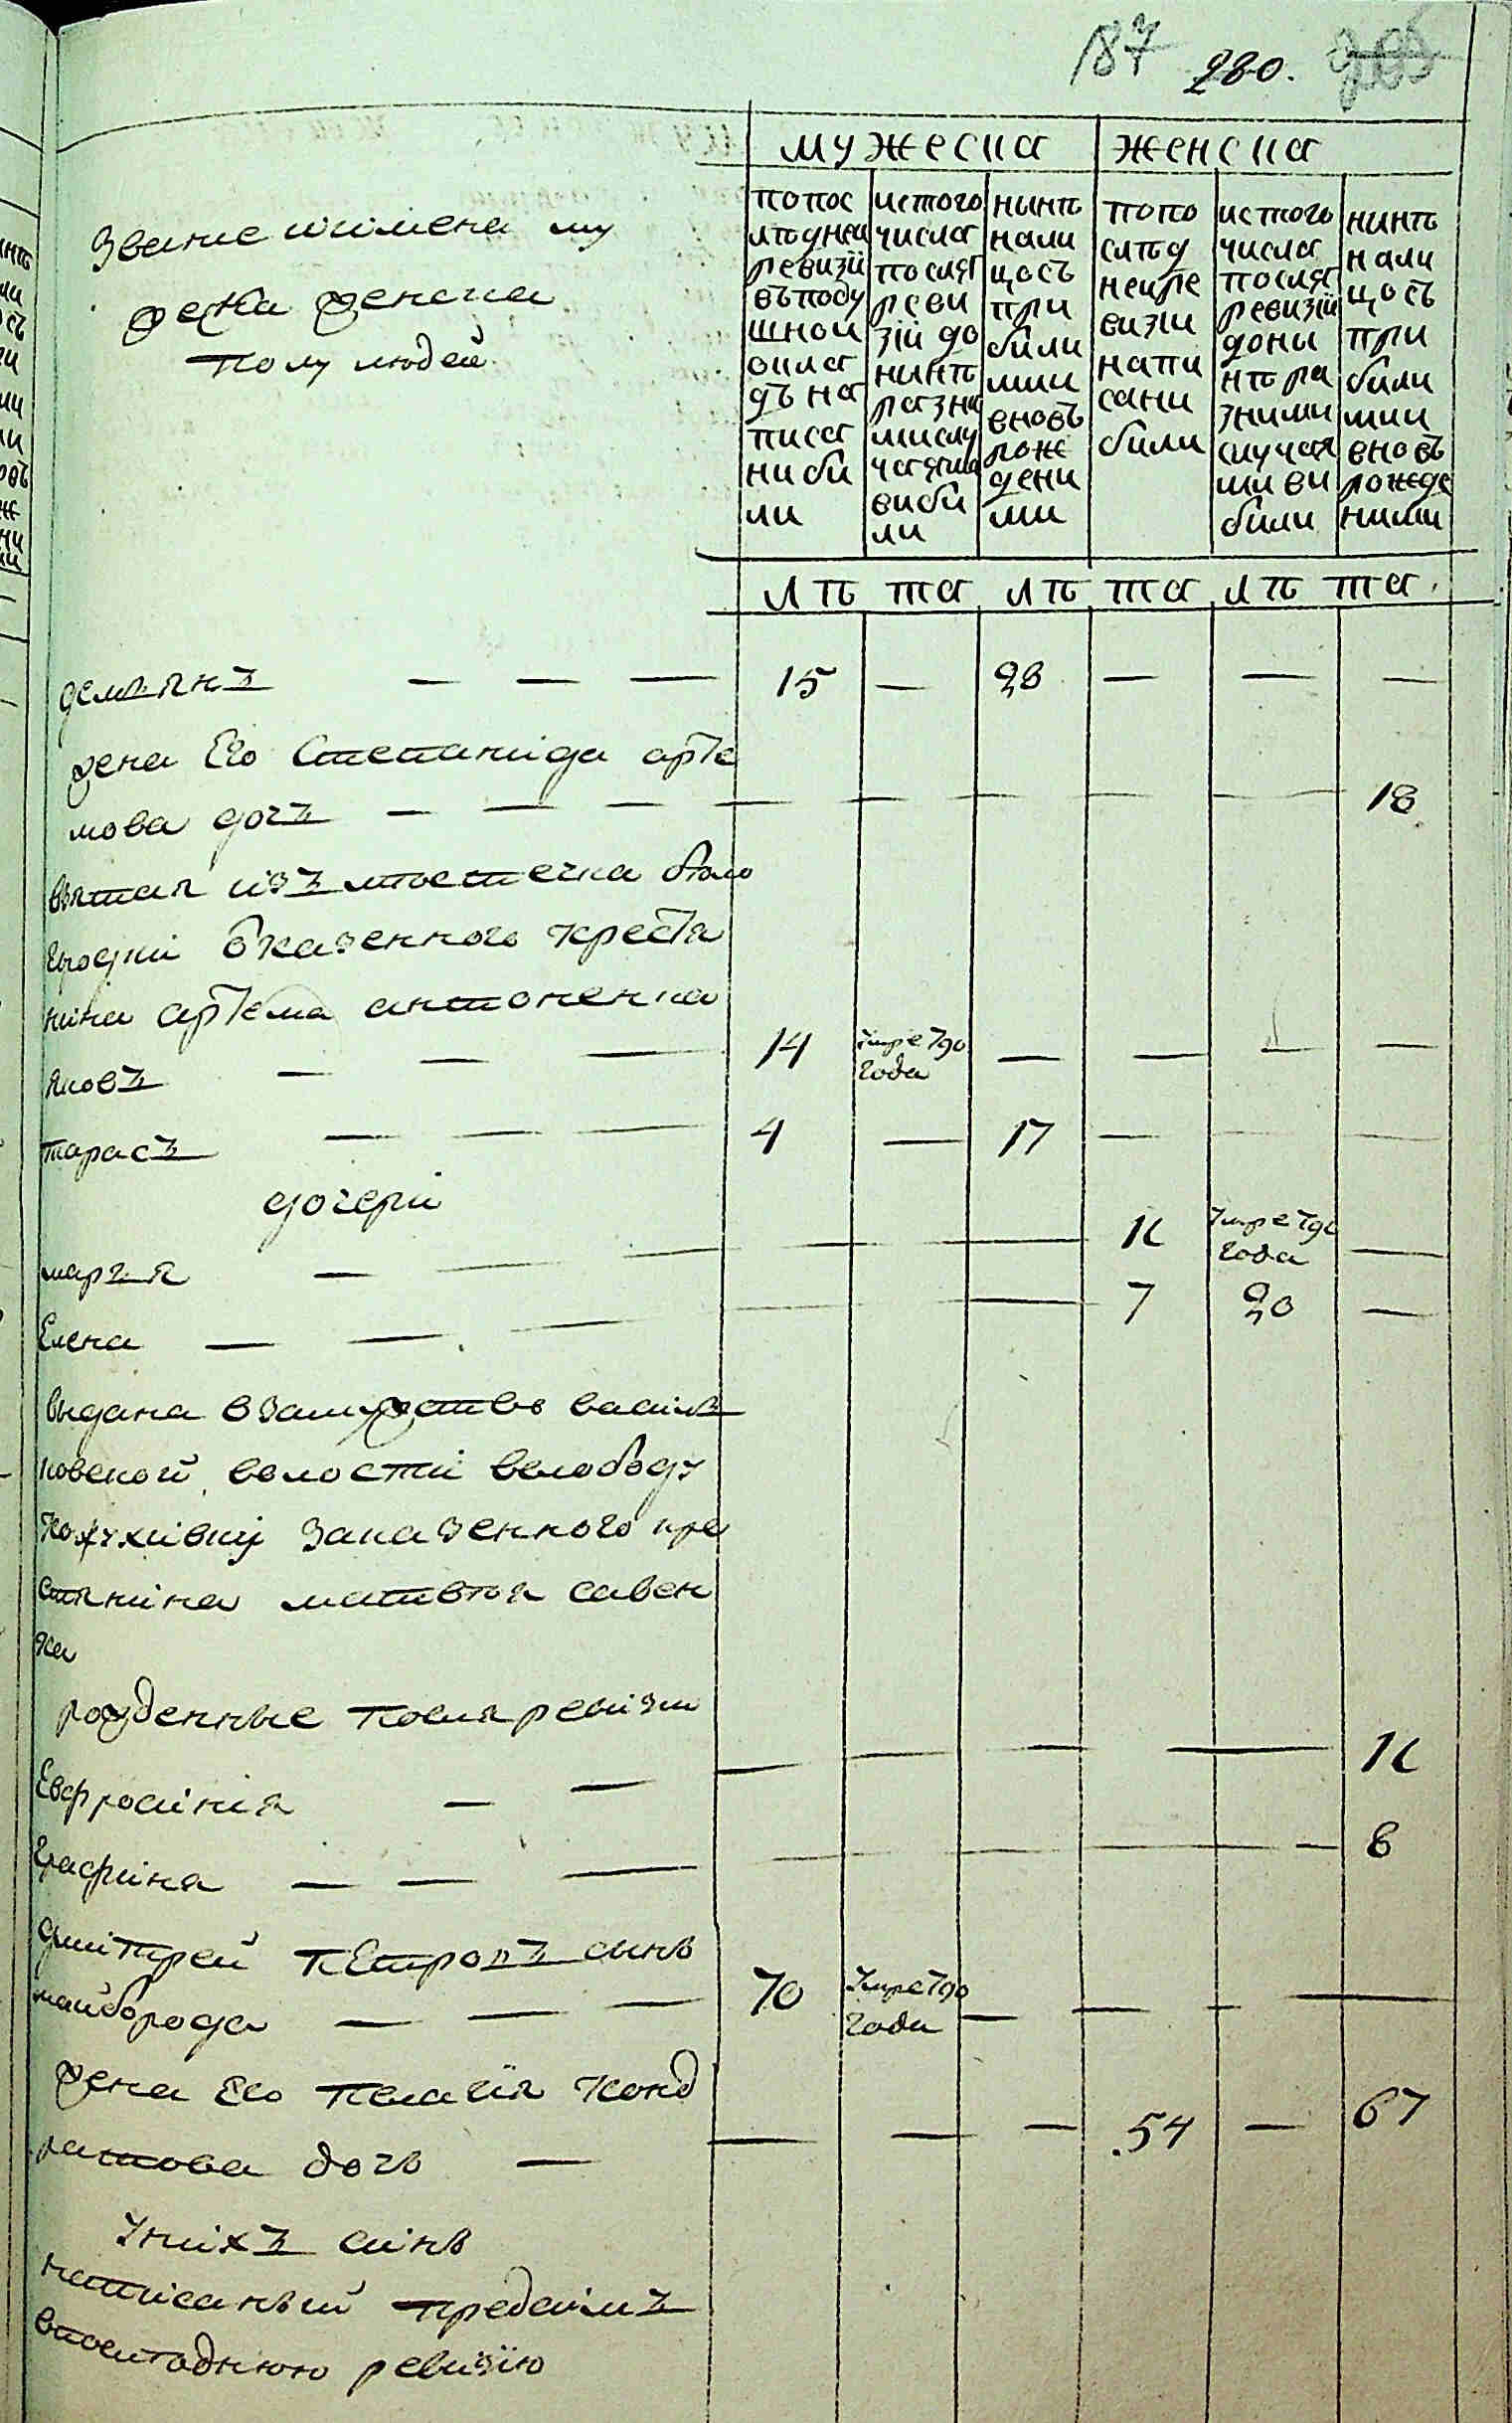 187 280.
мужеска женска
Звание иимена му
жеска женска
полу людей
попос
лѣднеи
ревизїи
въподу
шной
окла
дъ на
писа
ни би
ли
истого
числа
посля
реви
зїи до
нинѣ
разни
ми слу
чаями
виби
ли
нынѣ
нали
цось
при
били
ми
вновь
рож
дени
ми
попо
слѣд
неи ре
визіи
напи
сани
били
истого
числа
посля
ревизїи
доны
нѣ ра
зними
случая
ми ви
били
нинѣ
нали
цось
при
били
ми
вновь
рожде
ними
лѣ та лѣ та лѣ та
демянъ — — — 15 — 28 — — —
жена Его Степанида арте
мова дочъ — — — 18
взятая изъ мѣстечка бѣло
городки вказенного крестя
нина артема антоненка
яковъ — — — 14 Умре 790 года — — — —
тарасъ — — — 4 — 17 —
дочери
марія — 11 Умре 790 года —
Елена — — — 7 20 —
выдана взамужство василь
ковской волости вслободу
кожухивку заказенного кре
стянина матвѣя савен
ка
рожденные посля ревизіи
Евфросинія — — 11
Ерафина — — — 8
дмитрей петровъ сынъ
майборода — — — 70 Умре 790 года — — — —
жена Его пелагїя конд
ратова дочь — — — — 54 — 67
Унихъ синъ
написаный предсимъ
впоследнюю ревизїю